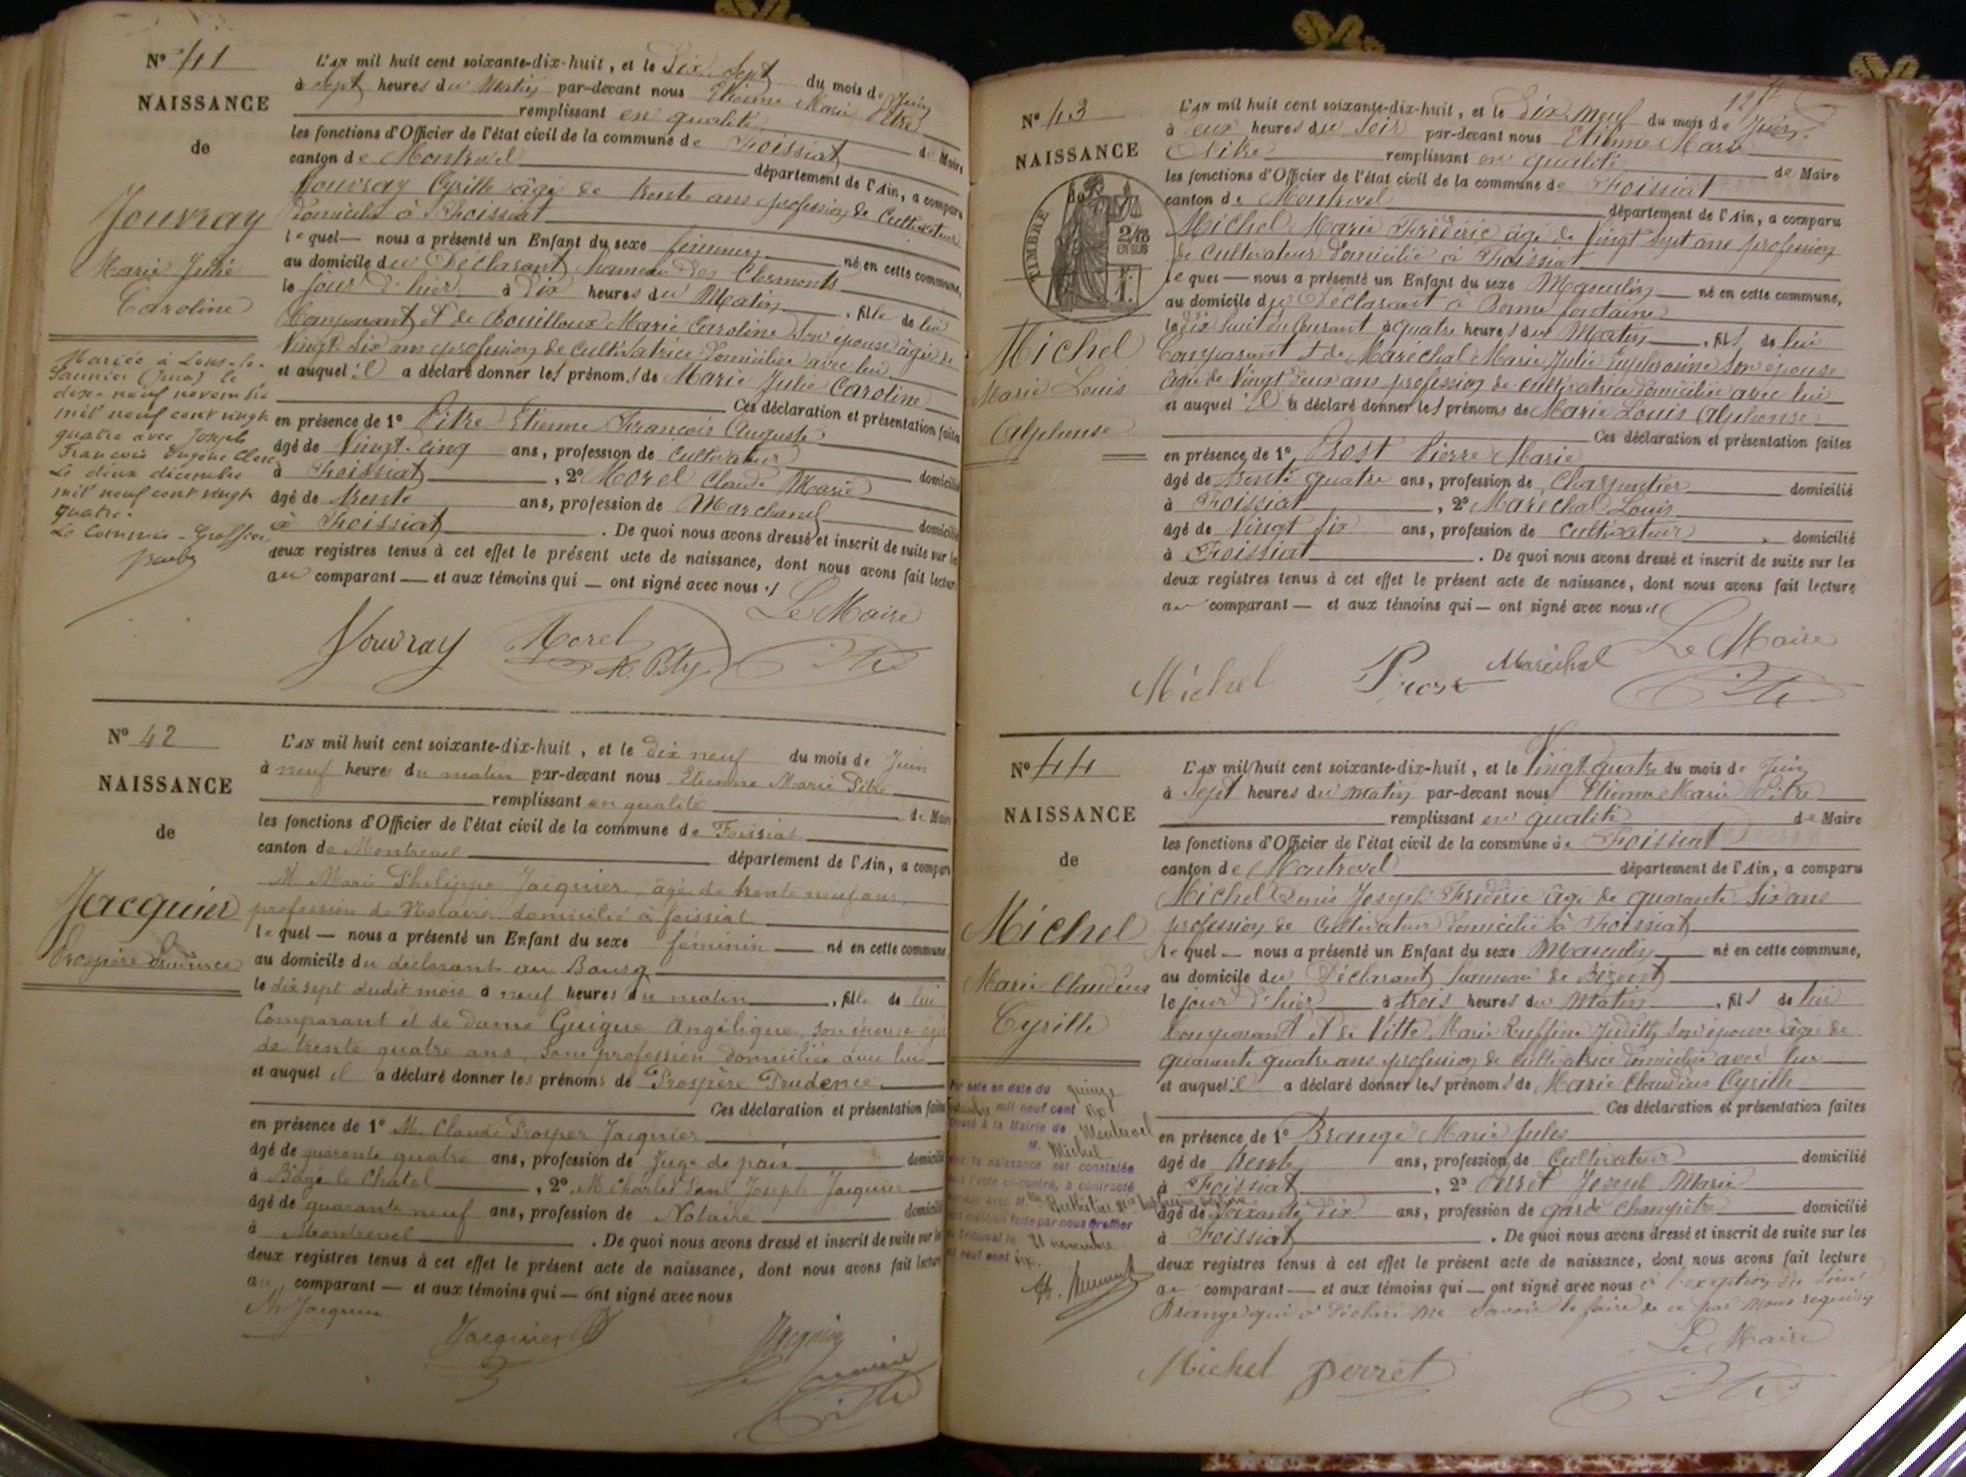 Nº 41
NAISSANCE
de
Jouvray
Marie Julie
Caroline
Mariée à Lons-le-
Saunier (Jura) le
dix-neuf novembre
mil neuf cent vingt
quatre avec Joseph
François Eugène
Le deux décembre
mil neuf cent vingt
quatre.
Le Commis-Greffier
L'AN mil huit cent soixante-dix-huit, et le Dix Sept du mois de Juin
à Sept heures du Matin par-devant nous Etienne Marie Pitre
remplissant en qualité de Maire
les fonctions d'Officier de l'état civil de la commune de Foissiat
canton de Montrevel département de l'Ain, a comparu
Jouvray Cyrille âgé de trente ans profession de Cultivateur
domicilié à Foissiat
lequel — nous a présenté un Enfant du sexe féminin né en cette commune,
au domicile du Déclarant hameau des Clermonts
le jour d'hier à Dix heures du Matin, fille de lui
Comparant et de Bouilloux Marie Caroline son épouse âgée de
Vingt Six ans profession de cultivatrice domiciliée avec lui
et auquel il a déclaré donner les prénoms de Marie Julie Caroline
Ces déclaration et présentation faites
en présence de 1º Pitre Etienne François Auguste
âgé de Vingt-cinq ans, profession de Cultivateur domicilié
à Foissiat, 2º Morel Claude Marie
âgé de trente ans, profession de Marchand domicilié
à Foissiat. De quoi nous avons dressé et inscrit de suite sur les
deux registres tenus à cet effet le présent acte de naissance, dont nous avons fait lecture
au comparant — et aux témoins qui — ont signé avec nous
Le Maire
Jouvray Morel Pitre
Nº 42
NAISSANCE
de
Jacquier
Prospère Prudence
L'AN mil huit cent soixante-dix-huit, et le dix neuf du mois de Juin
à neuf heures du matin par-devant nous Etienne Marie Pitre
remplissant en qualité de Maire
les fonctions d'Officier de l'état civil de la commune de Foissiat
canton de Montrevel département de l'Ain, a comparu
M. Marie Philippe Jacquier, âgé de trente neuf ans,
profession de Notaire domicilié à Foissiat
lequel — nous a présenté un Enfant du sexe féminin — né en cette commune
au domicile du déclarant au Bourg
le dix sept dudit mois à neuf heures du matin, fille de lui
Comparant et de dame Guigue Angélique, son épouse âgée
de trente quatre ans, sans profession domiciliée avec lui
et auquel il a déclaré donner les prénoms de Prospère Prudence
Ces déclaration et présentation faites
en présence de 1º M. Claude Prosper Jacquier
âgé de quarante quatre ans, profession de Juge de paix domicilié
à Bâgé le Châtel, 2º M. Charles Paul Joseph Jacquier
âgé de quarante neuf ans, profession de Notaire domicilié
à Montrevel. De quoi nous avons dressé et inscrit de suite sur les
deux registres tenus à cet effet le présent acte de naissance, dont nous avons fait lecture
au comparant — et aux témoins qui — ont signé avec nous
Jacquier
Jacquier Jacquier
Pitre
Nº 43
NAISSANCE
de
TIMBRE
2/10
EN SUS
Michel
Marie Louis
Alphonse
L'AN mil huit cent soixante-dix-huit, et le Dix Neuf du mois de Juin
à heures du Soir par-devant nous Etienne Marie
Pitre remplissant en qualité de Maire
les fonctions d'Officier de l'état civil de la commune de Foissiat
canton de Montrevel département de l'Ain, a comparu
Michel Marie Fréderic âgé de Vingt Sept ans profession
de Cultivateur domicilié à Foissiat
lequel — nous a présenté un Enfant du sexe Masculin né en cette commune,
au domicile du Déclarant à Bonne fontaine
le dix huit du Courant à quatre heures du Matin, fils de lui
Comparant et de Maréchal Marie Julie Euphrosine Son épouse
âgée de Vingt Deux ans profession de cultivatrice domiciliée avec lui
et auquel il a déclaré donner les prénoms de Marie Louis Alphonse
Ces déclaration et présentation faites
en présence de 1º Prost Pierre Marie
âgé de trente quatre ans, profession de Charpentier domicilié
à Foissiat, 2º Maréchal Louis
âgé de Vingt Six ans, profession de Cultivateur domicilié
à Foissiat. De quoi nous avons dressé et inscrit de suite sur les
deux registres tenus à cet effet le présent acte de naissance, dont nous avons fait lecture
au comparant — et aux témoins qui — ont signé avec nous
Le Maire
Michel Prost Maréchal Pitre
Nº 44
NAISSANCE
de
Michel
Marie Claudius
Cyrille
Par acte en date du quinze
mil neuf cent dix
passé à la Mairie de Montrevel
M. Michel
dont la naissance est constatée
dans l'acte ci-contre, a contracté
mariage avec Mlle
faite par nous Greffier
du tribunal le 21 novembre
mil neuf cent dix.
L'AN mil huit cent soixante-dix-huit, et le Vingt quatre du mois de Juin
à Sept heures du matin par-devant nous Etienne Marie Pitre
remplissant en qualité de Maire
les fonctions d'Officier de l'état civil de la commune de Foissiat
canton de Montrevel département de l'Ain, a comparu
Michel Denis Joseph Fréderic âgé de quarante Six ans
profession de Cultivateur domicilié à Foissiat
lequel — nous a présenté un Enfant du sexe Masculin né en cette commune,
au domicile du Déclarant hameau de
le jour d'hier à trois heures du Matin, fils de lui
comparant et de Vitte Marie Ruffine Judith, son épouse âgée de
quarante quatre ans profession de cultivatrice domiciliée avec lui
et auquel il a déclaré donner les prénoms de Marie Claudius Cyrille
Ces déclaration et présentation faites
en présence de 1º Brange Marie Jules
âgé de trente ans, profession de Cultivateur domicilié
à Foissiat, 2º Perret Joseph Marie
âgé de Soixante Dix ans, profession de garde Champêtre domicilié
à Foissiat. De quoi nous avons dressé et inscrit de suite sur les
deux registres tenus à cet effet le présent acte de naissance, dont nous avons fait lecture
au comparant — et aux témoins qui — ont signé avec nous à l'exception du Sieur
Brange qui a déclaré ne Savoir le faire de ce par Nous requis
Le Maire
Michel perret Pitre